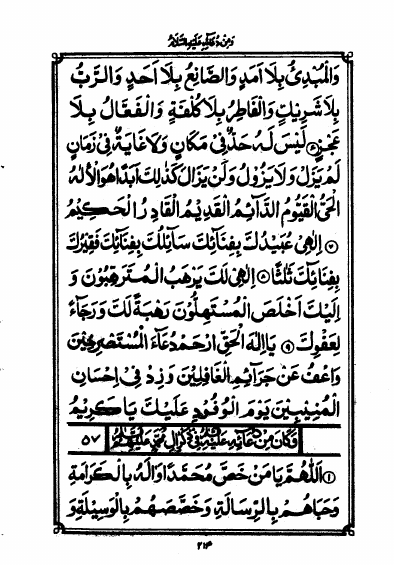 وَمِنْ دُعَائِهِ عَلَيْهِ السَّلَامُ
وَالْمُبْدِئُ بِلَا اَمَدٍ وَالصَّانِعُ بِلَا اَحَدٍ وَالرَّبُّ
بِلَا شَرِيْكٍ وَالْفَاطِرُ بِلَا كُلْفَةٍ وَالْفَعَّالُ بِلَا
عَجْزٍ ۶ لَيْسَ لَهُ حَدٌّ فِيْ مَكَانٍ وَلَا غَايَةٌ فِيْ زَمَانٍ
لَمْ يَزَلْ وَلَا يَزُوْلُ وَلَنْ يَزَالَ كَذٰلِكَ اَبَدًا هُوَ الْاِلٰهُ
الْحَيُّ الْقَيُّوْمُ الدَّائِمُ الْقَدِيْمُ الْقَادِرُ الْحَكِيْمُ
۷ اِلٰهِيْ عُبَيْدُكَ بِفِنَائِكَ سَائِلُكَ بِفِنَائِكَ فَقِيْرُكَ
بِفِنَائِكَ ثَلٰثًا ۸ اِلٰهِيْ لَكَ يَرْهَبُ الْمُتَرَهِّبُوْنَ وَ
اِلَيْكَ اَخْلَصَ الْمُسْتَهِلُّوْنَ رَهْبَةً لَكَ وَرَجَاءً
لِعَفْوِكَ ۹ يَا اِلٰهَ الْحَقِّ ارْحَمْ دُعَاءَ الْمُسْتَصْرِخِيْنَ
وَاعْفُ عَنْ جَرَائِمِ الْغَافِلِيْنَ وَزِدْ فِيْ اِحْسَانِ
الْمُنِيْبِيْنَ يَوْمَ الْوُفُوْدِ عَلَيْكَ يَا كَرِيْمُ
وَكَانَ مِنْ دُعَائِهِ عَلَيْهِ السَّلَامُ فِيْ ذِكْرِ اٰلِ مُحَمَّدٍ عَلَيْهِمُ السَّلَامُ ۵۷
۱ اَللّٰهُمَّ يَا مَنْ خَصَّ مُحَمَّدًا وَاٰلَهُ بِالْكَرَامَةِ
وَحَبَاهُمْ بِالرِّسَالَةِ وَخَصَّصَهُمْ بِالْوَسِيْلَةِ وَ
۲۱۴